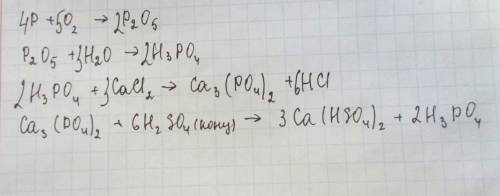 4P + 5O₂ → 2P₂O₅
P₂O₅ + 3H₂O → 2H₃PO₄
2H₃PO₄ + 3CaCl₂ → Ca₃(PO₄)₂ + 6HCl
Ca₃(PO₄)₂ + 6H₂SO₄(конц) → 3Ca(HSO₄)₂ + 2H₃PO₄